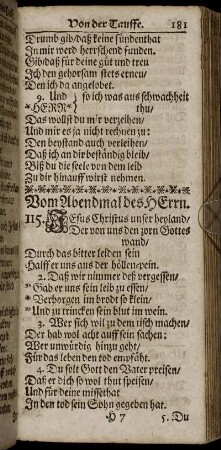 Von der Tauffe. 181
Drumb gib/daß keine sündenthat
In mir werd herrschend funden.
Gib/daß für deine güt und treu
Ich den gehorsam stets erneu/
Den ich da angelobet.
9. Und so ich was aus schwachheit
*HERR* thu/
Das wollst du mir verzeihen/
Und mir es ja nicht rechnen zu:
Den beystand auch verleihen/
Daß ich an dir beständig bleib/
Biß du die seele von dem leib
Zu dir hinauff wirst nehmen.
Vom Abendmal des HErrn.
115. JEsus Christus unser heyland/
Der von uns den zorn Gottes
wand/
Durch das bitter leiden sein
Halff er uns aus der höllen-pein.
2. Daß wir nimmer deß vergessen/
Gab er uns sein leib zu essen/
Verborgen im brodt so klein/
Und zu trincken sein blut im wein.
3. Wer sich wil zu dem tisch machen/
Der hab wol acht auff sein sachen:
Wer unwürdig hinzu geht/
Für das leben den tod empfäht.
4. Du solt Gott den Vater preisen/
Daß er dich so wol thut speisen/
Und für deine missethat
In den tod sein Sohn gegeben hat.
H 7 5. Du